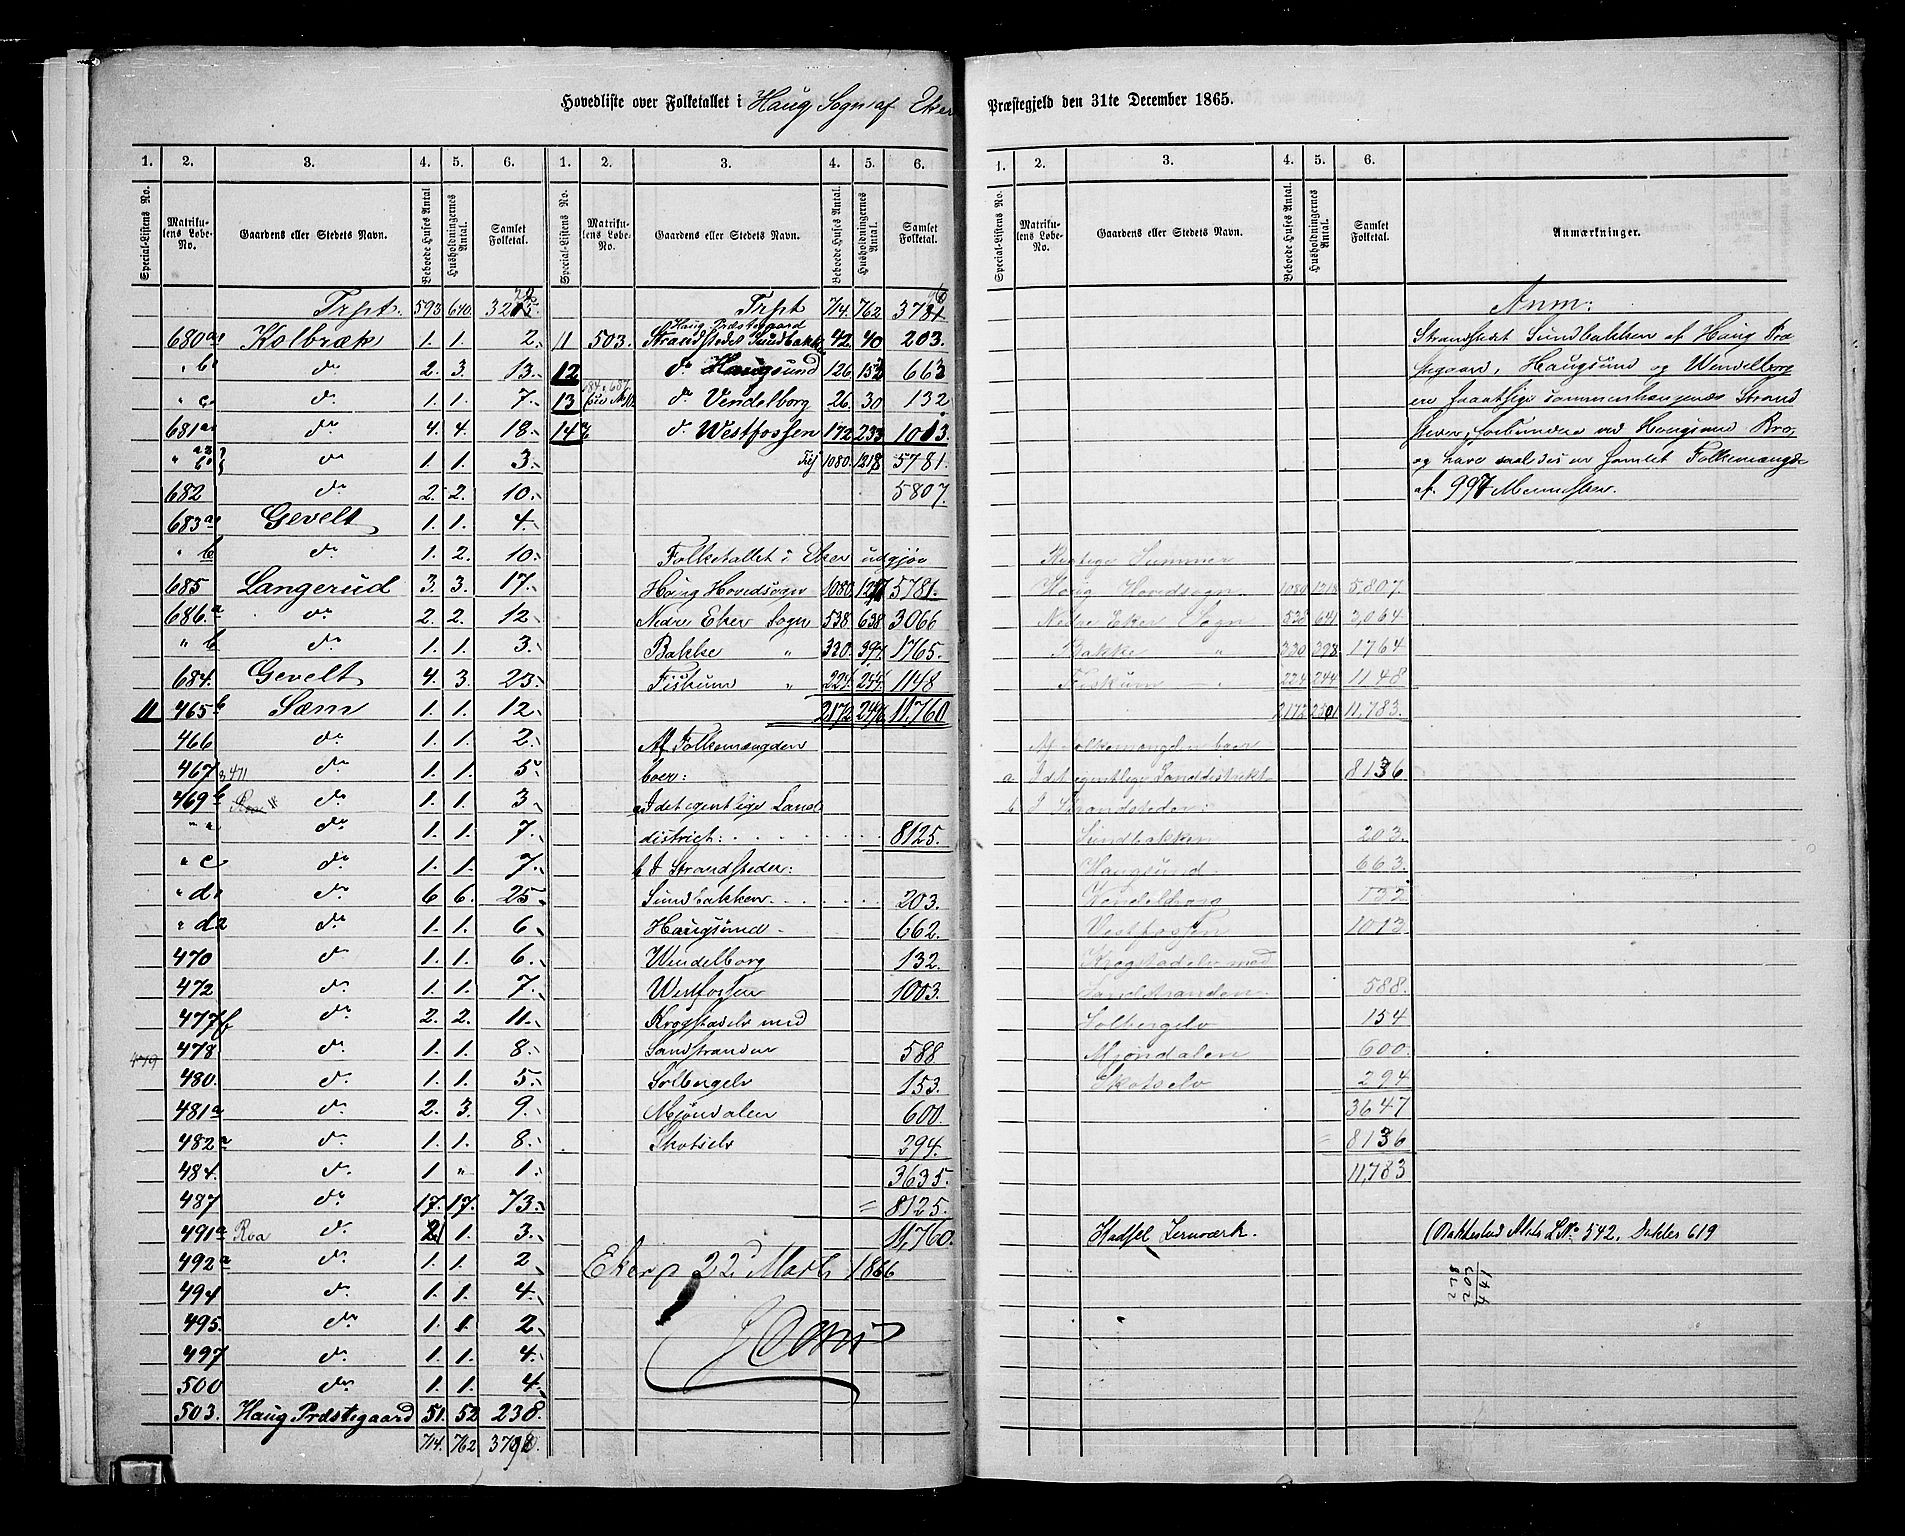 Hovedliste over Folketallet i Haug Sogn af Eker
Præstegjeld den 31te December 1865.
1. 2. 3. 4. 5. 6. 1. 2. 3. 4. 5. 6.
Special-Listens No. Matrikulens Løbe-No. Gaardens eller Stedets Navn. Beboede Huses Antal. Husholdningernes Antal. Samlet Folketal. Special-Listens No. Matrikulens Løbe-No. Gaardens eller Stedets Navn. Beboede Huses Antal. Husholdningernes Antal. Samlet Folketal.
Trpt. 593 640
680a Kolbræk 1. 1. 2.
" b do 2. 3. 13.
" c do 1. 1. 7.
681a do 4. 4. 18.
do 1. 1. 3.
682 do 2. 2. 10.
683a Gevelt 1. 1. 4.
" b do 1. 2. 10.
685 Langerud 3. 3. 17.
686a do 2. 2. 12
" b do 1. 1. 3.
684. Gevelt 4. 3. 23.
11 465b Sæm 1. 1. 12.
466 do 1. 1. 2.
467 & 471 do 1. 1. 5
469b do 1. 1. 3.
" a do 1. 1. 7.
" c do 1. 1. 7.
" d1 do 6 6. 25
" d2 do 1. 1. 6
470 do 1. 1. 6.
472 do 1. 1. 7.
477f do 2. 2. 11.
478 do 1. 1. 8.
479
480. do 1. 1. 5.
481a do 2. 3. 9.
482a do 1. 1. 8.
484. do 1 " 1.
487 do 17. 17. 73.
491a Roa do 1. 3.
492a do 1. 1. 2
494 do 1. 1. 4.
495. do 1. 1. 2
497 do 1. 1. 4.
500 do 1. 1. 4.
503. Haug Præstegaard 51. 52 238.
714. 762
Trpt 714. 762
Haug Præstegaard
11 503. Strandstedet Sundbakken 42. 40 203.
12 do Haugsund 126 663
13 do Vendelborg 26. 30 132
14 do Westfossen 172 233 1013.
1080. 1218 5781.
5807.
Folketallet i Eker udgjør
Haug Hovedsogn 1080. 5781.
Nedre Eker Sogn 538 638 3066
Bakke " 330. 397 1765.
Fiskum " 224. 244. 1148
2172 11,760
Af Folkemængden
boer:
a I det egentlige Land
district: 8125.
b I Strandsteder:
Sundbakken 203.
Haugsund 662.
Wendelborg 132.
Westfossen 1003.
Krogstadelv med
Sandstranden 588
Solbergelv 153.
Mjøndalen 600.
Skotselv 294.
3635.
= 8125.
11,760.
Eker p 22 Marts 1866
1. 2. 3. 4. 5. 6.
Special-Listens No. Matrikulens Løbe-No. Gaardens eller Stedets Navn. Beboede Huses Antal. Husholdningernes Antal. Samlet Folketal. Anmærkninger.
Rigtige Summer
Haug Hovedsogn 1080 1218 5807.
Nedre Eker Sogn 538 641 3,064.
Bakke " 330 398. 1764
Fiskum " 224 244 1148
2172 2501 11,783.
Af Folkemængden boer
a I det egentlige Landdistrikt 8136
b I Strandsteder:
Sundbakken 203.
Haugsund 663.
Wendelborg 132
Vestfossen 1013.
Krogstadelv med
Sandstranden 588.
Solbergelv 154
Mjøndalen 600.
Skotselv 294
3647
= 8136
11,783
Hadsel Jernværk.
Anm:
Strandstedet Sundbakken af Haug Præ
stegaard, Haugsund og Wendelborg
ere samtlige sammenhængende Strand
steder, forbundne ved Haugsund Bro,
og have saaledes en samlet Folkemængde
af 997 Mennesker.
542. 619